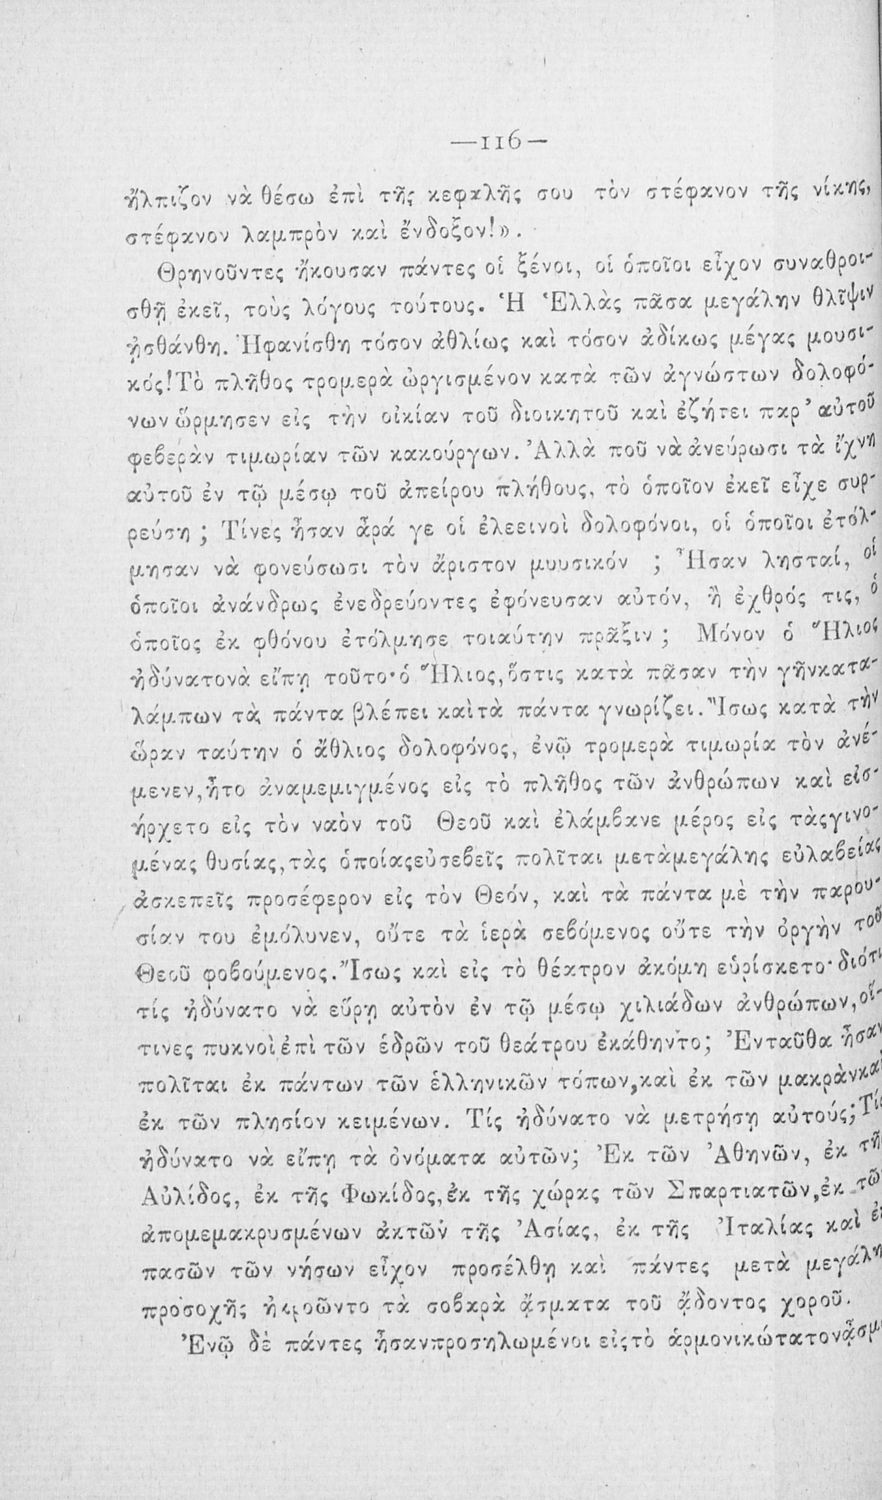 —116—
ἤλπιζον νὰ θέσω ἐπὶ τῆς κεφαλῆς σου τὸν στέφανον τῆς νίκης,
στέφανον λαμπρὸν καὶ ἔνδοξον!».
Θρηνοῦντες ἤκουσαν πάντες οἱ ξένοι, οἱ ὁποῖοι εἶχον συναθροι-
σθῆ ἐκεῖ, τοὺς λόγους τούτους. Ἡ Ἑλλὰς πᾶσα μεγάλην θλῖψιν
ᾐσθάνθη. Ἠφανίσθη τόσον ἀθλίως καὶ τόσον ἀδίκως μέγας μουσι-
κός! Τὸ πλῆθος τρομερὰ ὠργισμένον κατὰ τῶν ἀγνώστων δολοφό-
νων ὥρμησεν εἰς τὴν οἰκίαν τοῦ διοικητοῦ καὶ ἐζήτει παρ' αὐτοῦ
φεβερὰν τιμωρίαν τῶν κακούργων. Ἀλλὰ ποῦ νὰ ἀνεύρωσι τὰ ἴχνη
αὐτοῦ ἐν τῷ μέσῳ τοῦ ἀπείρου πλήθους, τὸ ὁποῖον ἐκεῖ εἶχε συρ-
ρεύσῃ ; Τίνες ἦσαν ἆρά γε οἱ ἐλεεινοὶ δολοφόνοι, οἱ ὁποῖοι ἐτόλ-
μησαν νὰ φονεύσωσι τὸν ἄριστον μυυσικόν ; Ἦσαν λησταί, οἱ
ὁποῖοι ἀνάνδρως ἐνεδρεύοντες ἐφόνευσαν αὐτόν, ἢ ἐχθρός τις, ὁ
ὁποῖος ἐκ φθόνου ἐτόλμησε τοιαύτην πρᾶξιν ; Μόνον ὁ Ἥλιος
ἠδύνατονὰ εἴπῃ τοῦτο·ὁ Ἥλιος,ὅστις κατὰ πᾶσαν τὴν γῆνκατα-
λάμπων τὰ πάντα βλέπει καὶτὰ πάντα γνωρίζει. Ἴσως κατὰ τὴν
ὥραν ταύτην ὁ ἄθλιος δολοφόνος, ἐνῷ τρομερὰ τιμωρία τὸν ἀνέ-
μενεν,ἦτο ἀναμεμιγμένος εἰς τὸ πλῆθος τῶν ἀνθρώπων καὶ εἰσ-
ήρχετο εἰς τὸν ναὸν τοῦ Θεοῦ καὶ ἐλάμβανε μέρος εἰς τὰςγινο-
μένας θυσίας,τὰς ὁποίαςεὐσεβεῖς πολῖται μετὰμεγάλης εὐλαβείας
ἀσκεπεῖς προσέφερον εἰς τὸν Θεόν, καὶ τὰ πάντα μὲ τὴν παρου-
σίαν του ἐμόλυνεν, οὔτε τὰ ἱερὰ σεβόμενος οὔτε τὴν ὀργὴν τοῦ
Θεοῦ φοβούμενος. Ἴσως καὶ εἰς τὸ θέατρον ἀκόμη εὑρίσκετο·διότι
τίς ἠδύνατο νὰ εὕρῃ αὐτὸν ἐν τῷ μέσῳ χιλιάδων ἀνθρώπων,οἵ-
τινες πυκνοὶἐπὶ τῶν ἑδρῶν τοῦ θεάτρου ἐκάθηντο; Ἐνταῦθα ἦσαν
πολῖται ἐκ πάντων τῶν ἑλληνικῶν τόπων,καὶ ἐκ τῶν μακρὰνκαὶ
ἐκ τῶν πλησίον κειμένων. Τίς ἠδύνατο νὰ μετρήσῃ αὐτούς; Τίς
ἠδύνατο νὰ εἴπῃ τὰ ὀνόματα αὐτῶν; Ἐκ τῶν Ἀθηνῶν, ἐκ τῆς
Αὐλίδος, ἐκ τῆς Φωκίδος,ἐκ τῆς χώρας τῶν Σπαρτιατῶν,ἐκ τῶ
ἀπομεμακρυσμένων ἀκτῶν τῆς Ἀσίας, ἐκ τῆς Ἰταλίας καὶ ἐ
πασῶν τῶν νήσων εἶχον προσέλθη καὶ πάντες μετὰ μεγάλη
προσοχῆς ἠκροῶντο τὰ σοβαρὰ ᾄσματα τοῦ ᾄδοντος χοροῦ.
Ἐνῷ δὲ πάντες ἦσανπροσηλωμένοι εἰςτὸ ἁρμονικώτατονᾆσμ